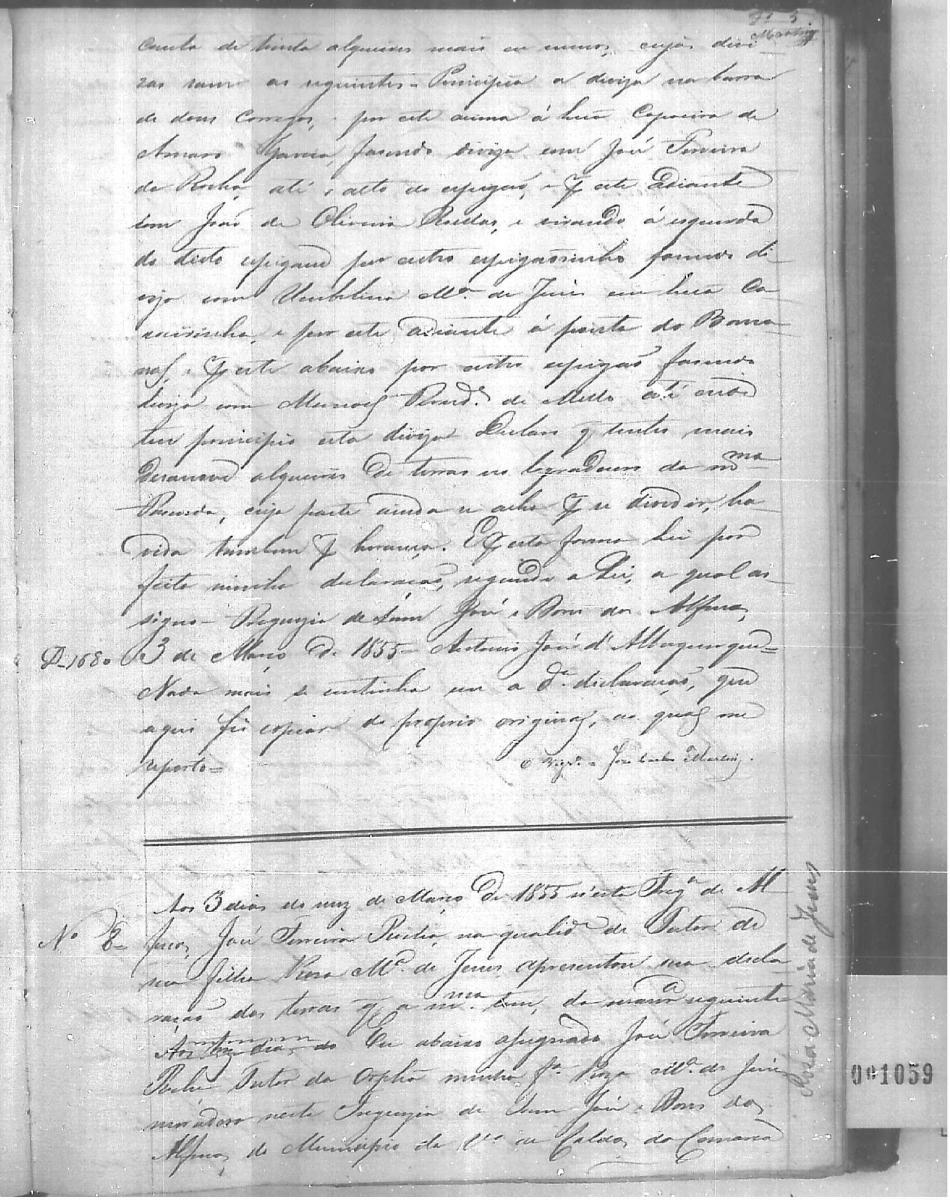 Fª 5.
Martins
centa de trinta alqueires mais ou menos, cujas divi
zas sam as seguintes = Principia a diviza na barra
de dous Corregos, por este acima á hua Capoeira de
Amaro Garcia fasendo diviza com José Ferreira
da Rocha, até o alto do espigaõ, e por este Adiante
com Joaõ de Oliveira, e virando á esquerda
do dicto espigaõ por outro espigaõsinho fasendo di
viza com Umbelina Mª. de Jesus em hua Ca
e por este adiante á ponta do
e por este abaixo por outro espigaõ fasendo
diviza com Manoel de Mello até onde
teve principio esta diviza Declaro q tenho mais
alqueires de terras no logradouro da mma
Fasenda, cuja parte ainda se acha por se dividir, ha
vida tambem por herança. E por esta forma hei por
feita minha declaraçaõ, segundo a Lei, a qual as
signo = Freguezia de Sam José e Dores dos Alfenas,
D-1680 3 de Março de 1855 = Antonio José d'Albuquerque =
Nada mais se continha em a dª. declaraçaõ, que
aqui fis copiar do proprio original, ao qual me
reporto =
O Vigrº. José Carlos Martins.
Aos 3 dias do mez de Março de 1855 n'esta Fregª de Al
Nº 8 = fenas, José Ferreira na qualidº de Tutor de
sua filha Rosa Mª. de Jesus apresentou sua decla
raçaõ das terras q a mma tem, da maneª seguinte
Aos dias do Eu abaixo assignado José Ferreira
Tutor da Orphã minha fª. Roza Mª. de Jesus
morador nesta Freguezia de Sam José e Dores dos
Alfenas, do Municipio da Vª de Caldas, da Comarca
Rosa Maria de Jesus
001059